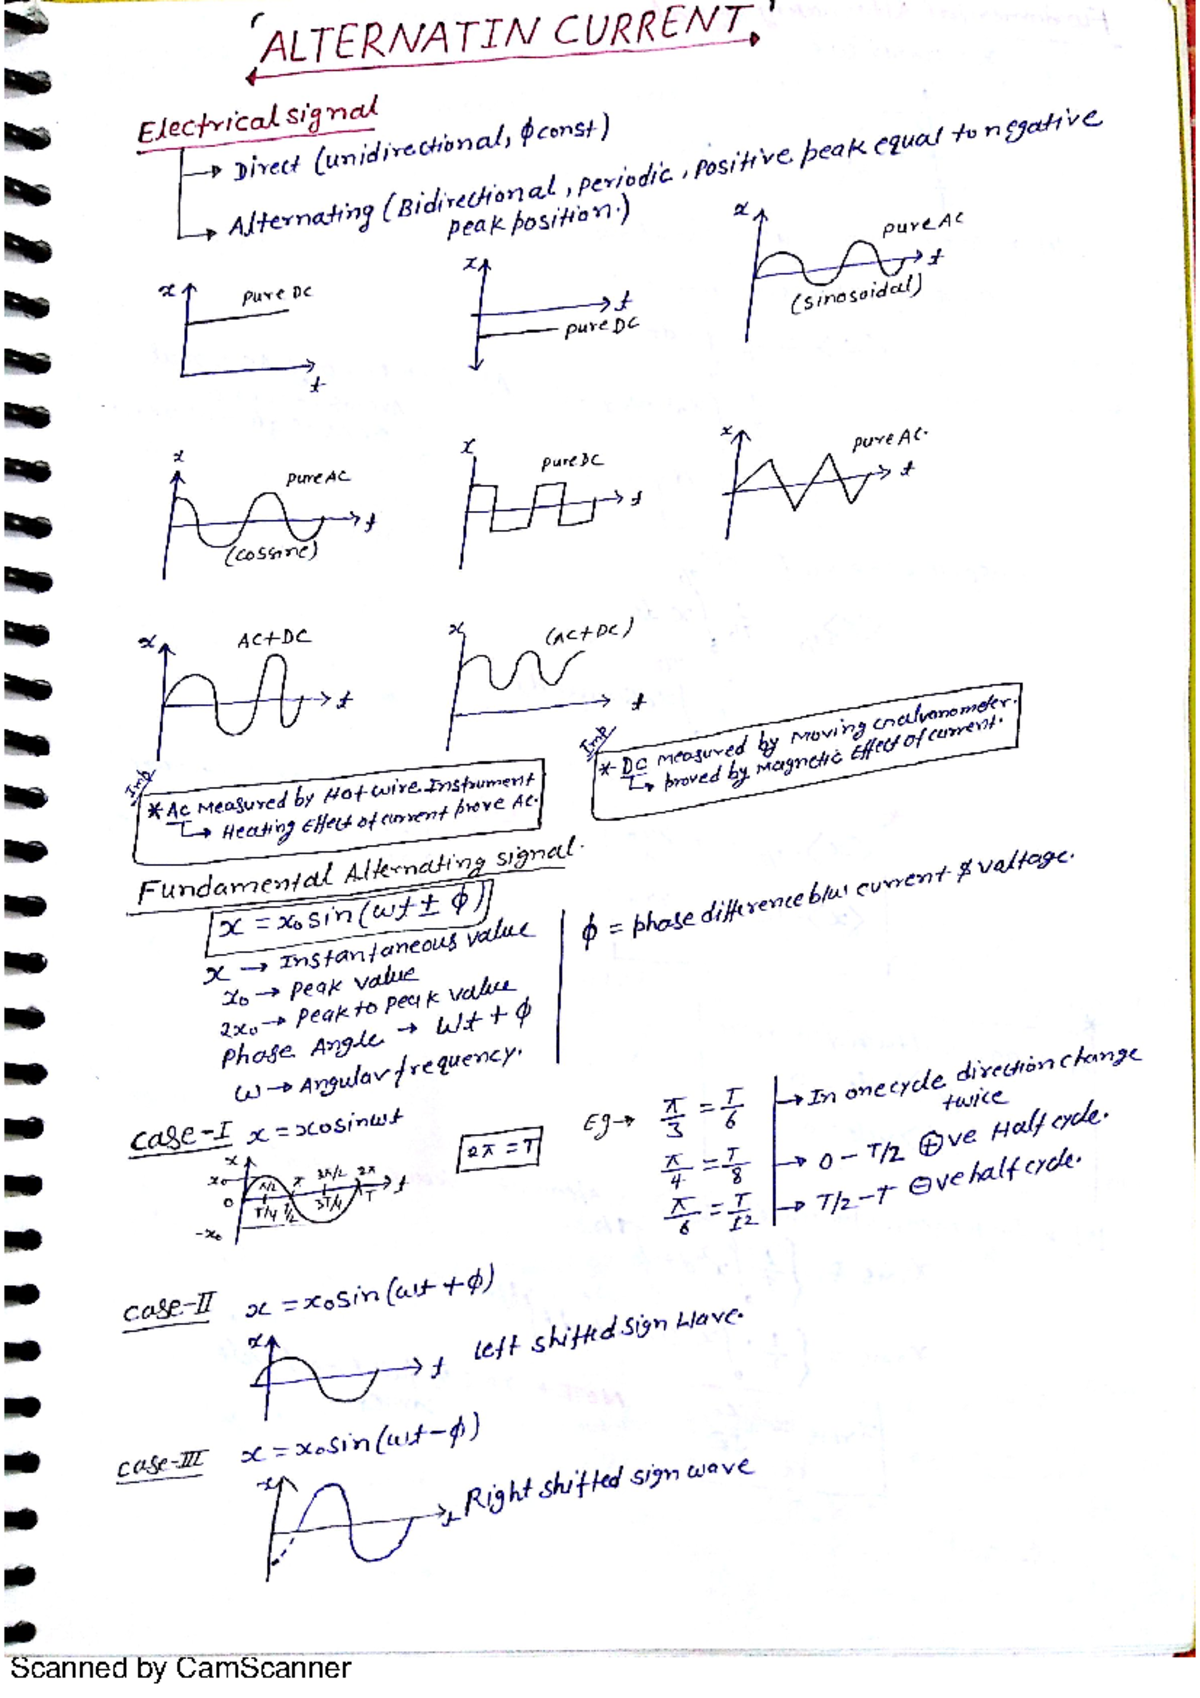 'ALTERNATIN CURRENT'
Electrical signal
→ Direct (unidirectional, ϕ const)
→ Alternating (Bidirectional, periodic, positive peak equal to negative
peak position.)
x pure DC t
x t pure DC
x pure AC t
(sinosoidal)
x pure AC t
(cossine)
x pure DC t
x pure AC. t
x AC+DC t
x (AC+DC) t
Imp
* AC Measured by Hot wire Instrument
→ Heating Effect of current prove AC.
Imp
* DC measured by Moving Gnalvanometer.
→ proved by Magnetic Effect of current.
Fundamental Alternating signal.
x = x₀ sin (ωt ± ϕ)
x → Instantaneous value
x₀ → peak value
2x₀ → peak to peak value
phase Angle → ωt + ϕ
ω → Angular frequency.
ϕ = phase difference b/w current & voltage.
case-I x = x₀sinωt
2π = T
x
x₀ π/2 π 3π/2 2π t
0 T/4 T/2 3T/4 T
-x₀
Eg→ π/3 = T/6
π/4 = T/8
π/6 = T/12
→ In one cycle direction change
twice
→ 0 - T/2 ⊕ve Half cycle.
→ T/2 - T ⊖ve half cycle.
case-II x = x₀sin(ωt + ϕ)
x t Left shifted sign wave.
case-III x = x₀sin(ωt - ϕ)
x t Right shifted sign wave
Scanned by CamScanner